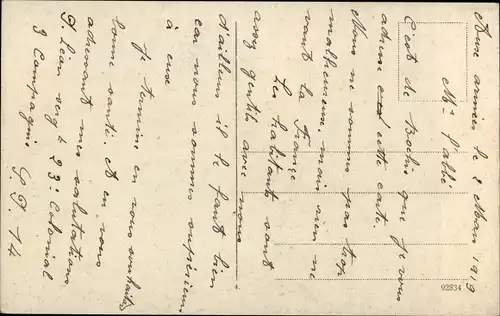 Aux armées le 2 Mars 1919
Mr l'abbé
C'est de Boches que je vous
adresse cette carte.
Nous ne sommes pas trop
malheureux, mais rien ne
vaut la France
Les habitants sont
assez gentils avec nous
d'ailleurs il le faut bien
car nous sommes supérieurs
à eux
Je termine en vous souhaitant
bonne santé. Et en vous
adressant mes salutations
P. Léon serg t 23e Colonial
3 Compagnie S. P. 14
92834